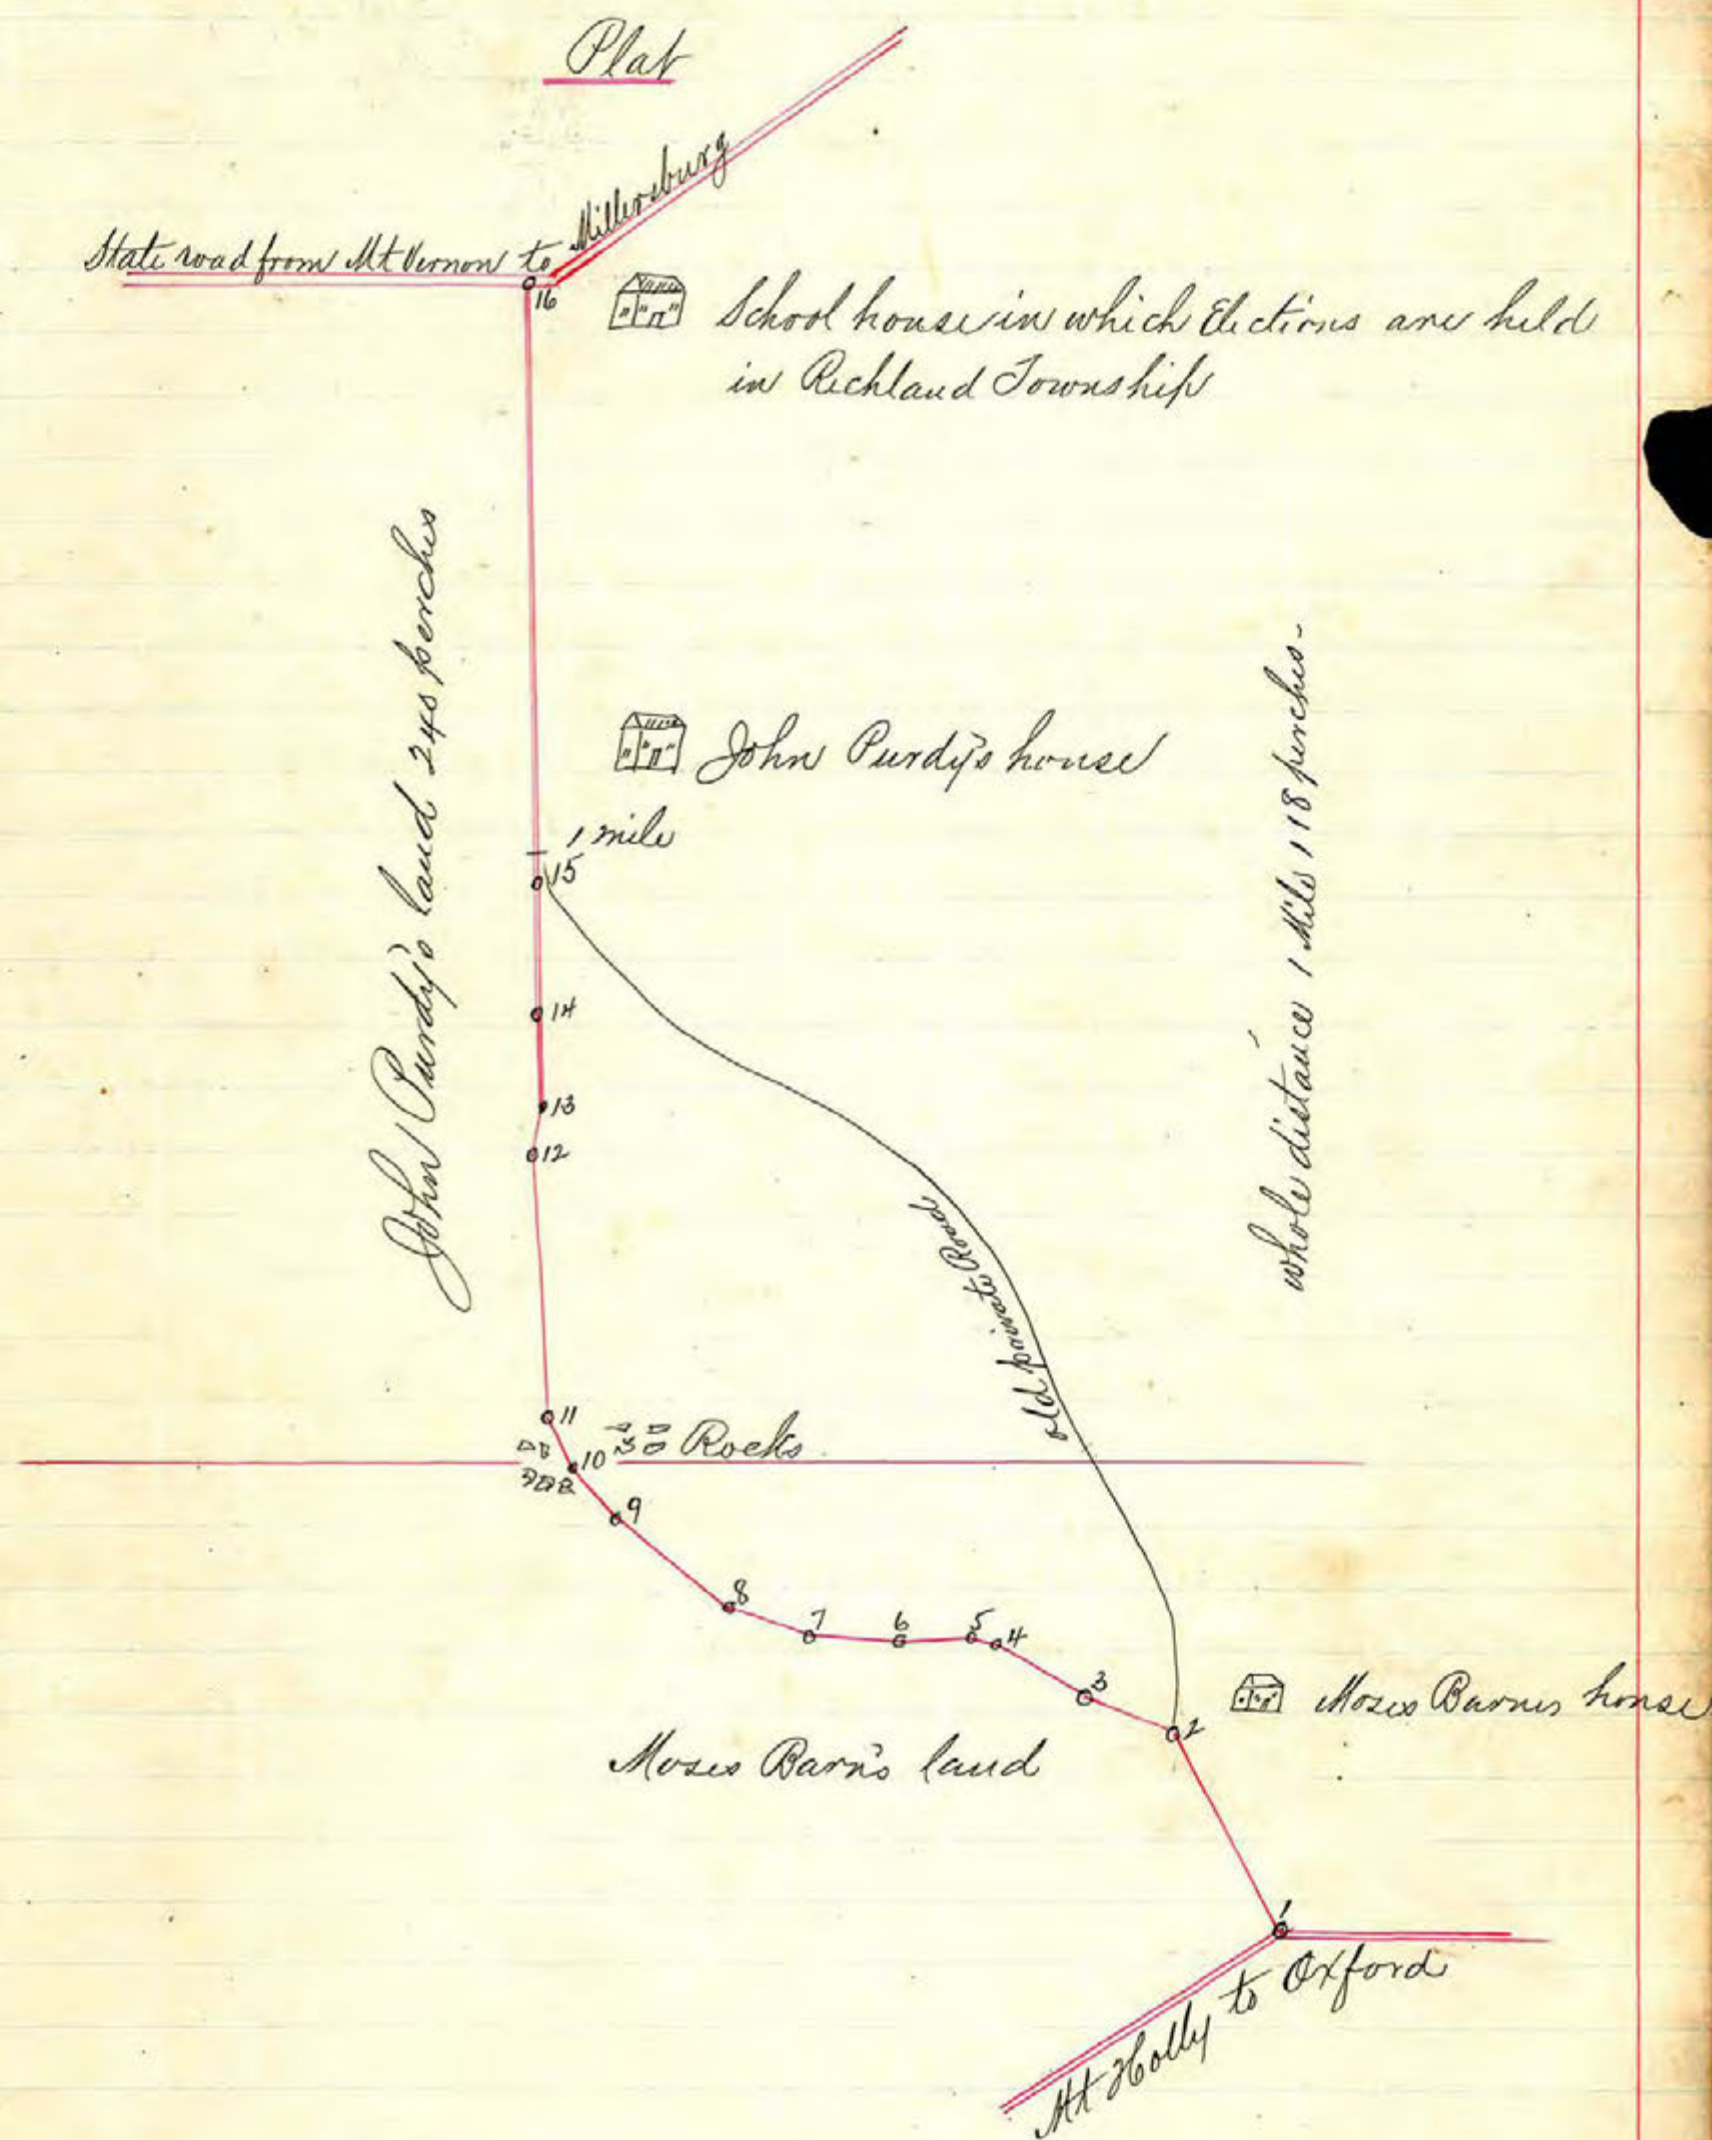 Plat
State road from Mt Vernon to Millersburg
16
School house in which Elections are held
in Richland Township
John Purdy's land 240 perches
John Purdy's house
1 mile
15
14
13
12
whole distance 1 Mile 118 perches-
old private Road
11
10
Rocks
9
8
7
6
5
4
3
2
Moses Barnes house
Moses Barn's land
1
Mt Holly to Oxford